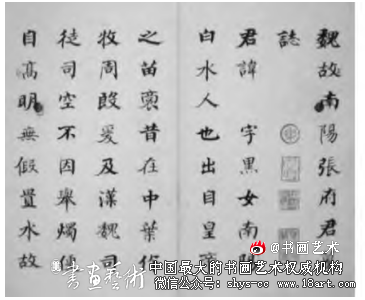 魏故南陽張府君
誌
君諱 字黑女南陽
白水人也出自皇
之苗裔昔在中葉作
牧周殷爰及漢魏司
徒司空不因舉燭便
自高明無假置水故
@书画艺术
書畫藝術
中国最大的书画艺术权威机构
微信公众号: shys-cc www.18art.com